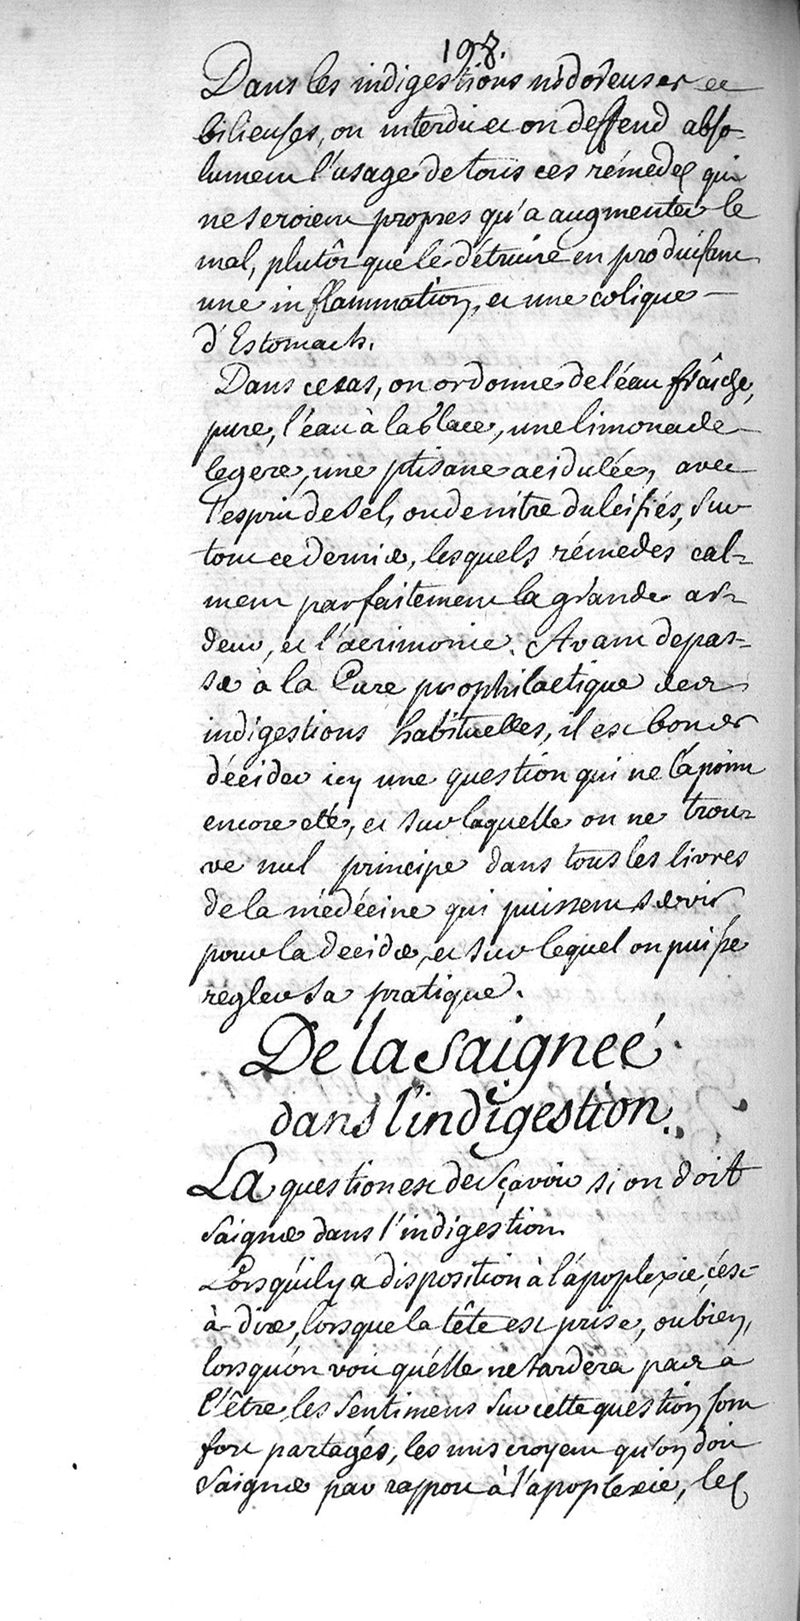 198.
Dans les indigestions nidoreuses et
bilieuses, on interdit et on deffend abso-
lument l'usage de tous ces rémedes qui
ne seroient propres qu'a augmenter le
mal, plutôt que le détruire en produisant
une inflammation, et une colique
d'Estomach.
Dans ce cas, on ordonne de l'éau fraîche,
pure, l'éau à la Glace, une limonade
legere, une ptisane acidulée, avec
l'esprit de sel, ou de nitre dulcifiés, sur
tout ce dernier, lesquels rémedes cal-
ment parfaitement la grande ar-
deur, et l'acrimonie. Avant de pas-
ser à la Cure prophilactique des
indigestions habituelles, il est bon de
décider icy une question qui ne l'a point
encore eté, et sur laquelle on ne trou-
ve nul principe dans tous les livres
de la médécine qui puissent servir
pour la decider, et sur lequel on puisse
regler sa pratique.
De la Saigneé
dans l'indigestion.
La question est de sçavoir si on doit
saigner dans l'indigestion.
Lorsqu'il y a disposition à l'apoplexie, c'est
à dire, lorsque la tête est prise, ou bien,
lorsqu'on voit qu'elle ne tardera pas a
l'être les sentimens sur cette question sont
fort partagés, les uns croyent qu'on doit
saigner par rapport à l'apoplexie, les